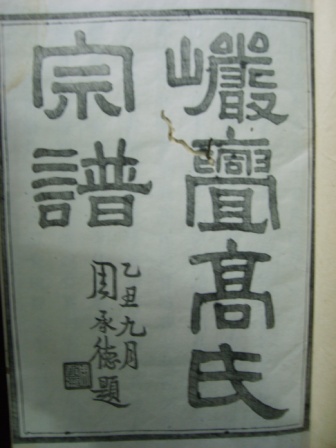 巖亶髙氏
宗譜
乙丑九月
周承德題